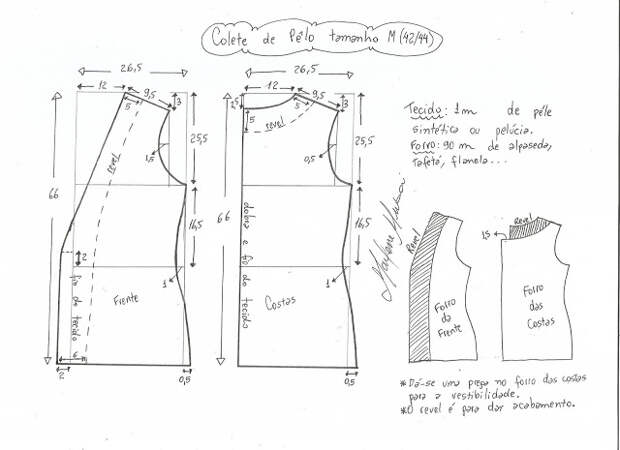 Colete de Pêlo tamanho M (42/44)
26,5
12
9,5
5
3
revel
1,5
25,5
66
16,5
2
1
Frente
fio do tecido
6
2
0,5
26,5
12
9,5
2,5
5
3
5
revel
1,5
25,5
66
16,5
dobra e fio do tecido
1
Costas
0,5
Tecido: 1m de pêle
sintética ou pelúcia.
Forro: 90 m de alpaseda,
tafetá, flanela...
Revel
Forro
da
Frente
Revel
1,5
Forro
das
Costas
*Dá-se uma prega no forro das costas
para a vestibilidade.
*O revel é para dar acabamento.